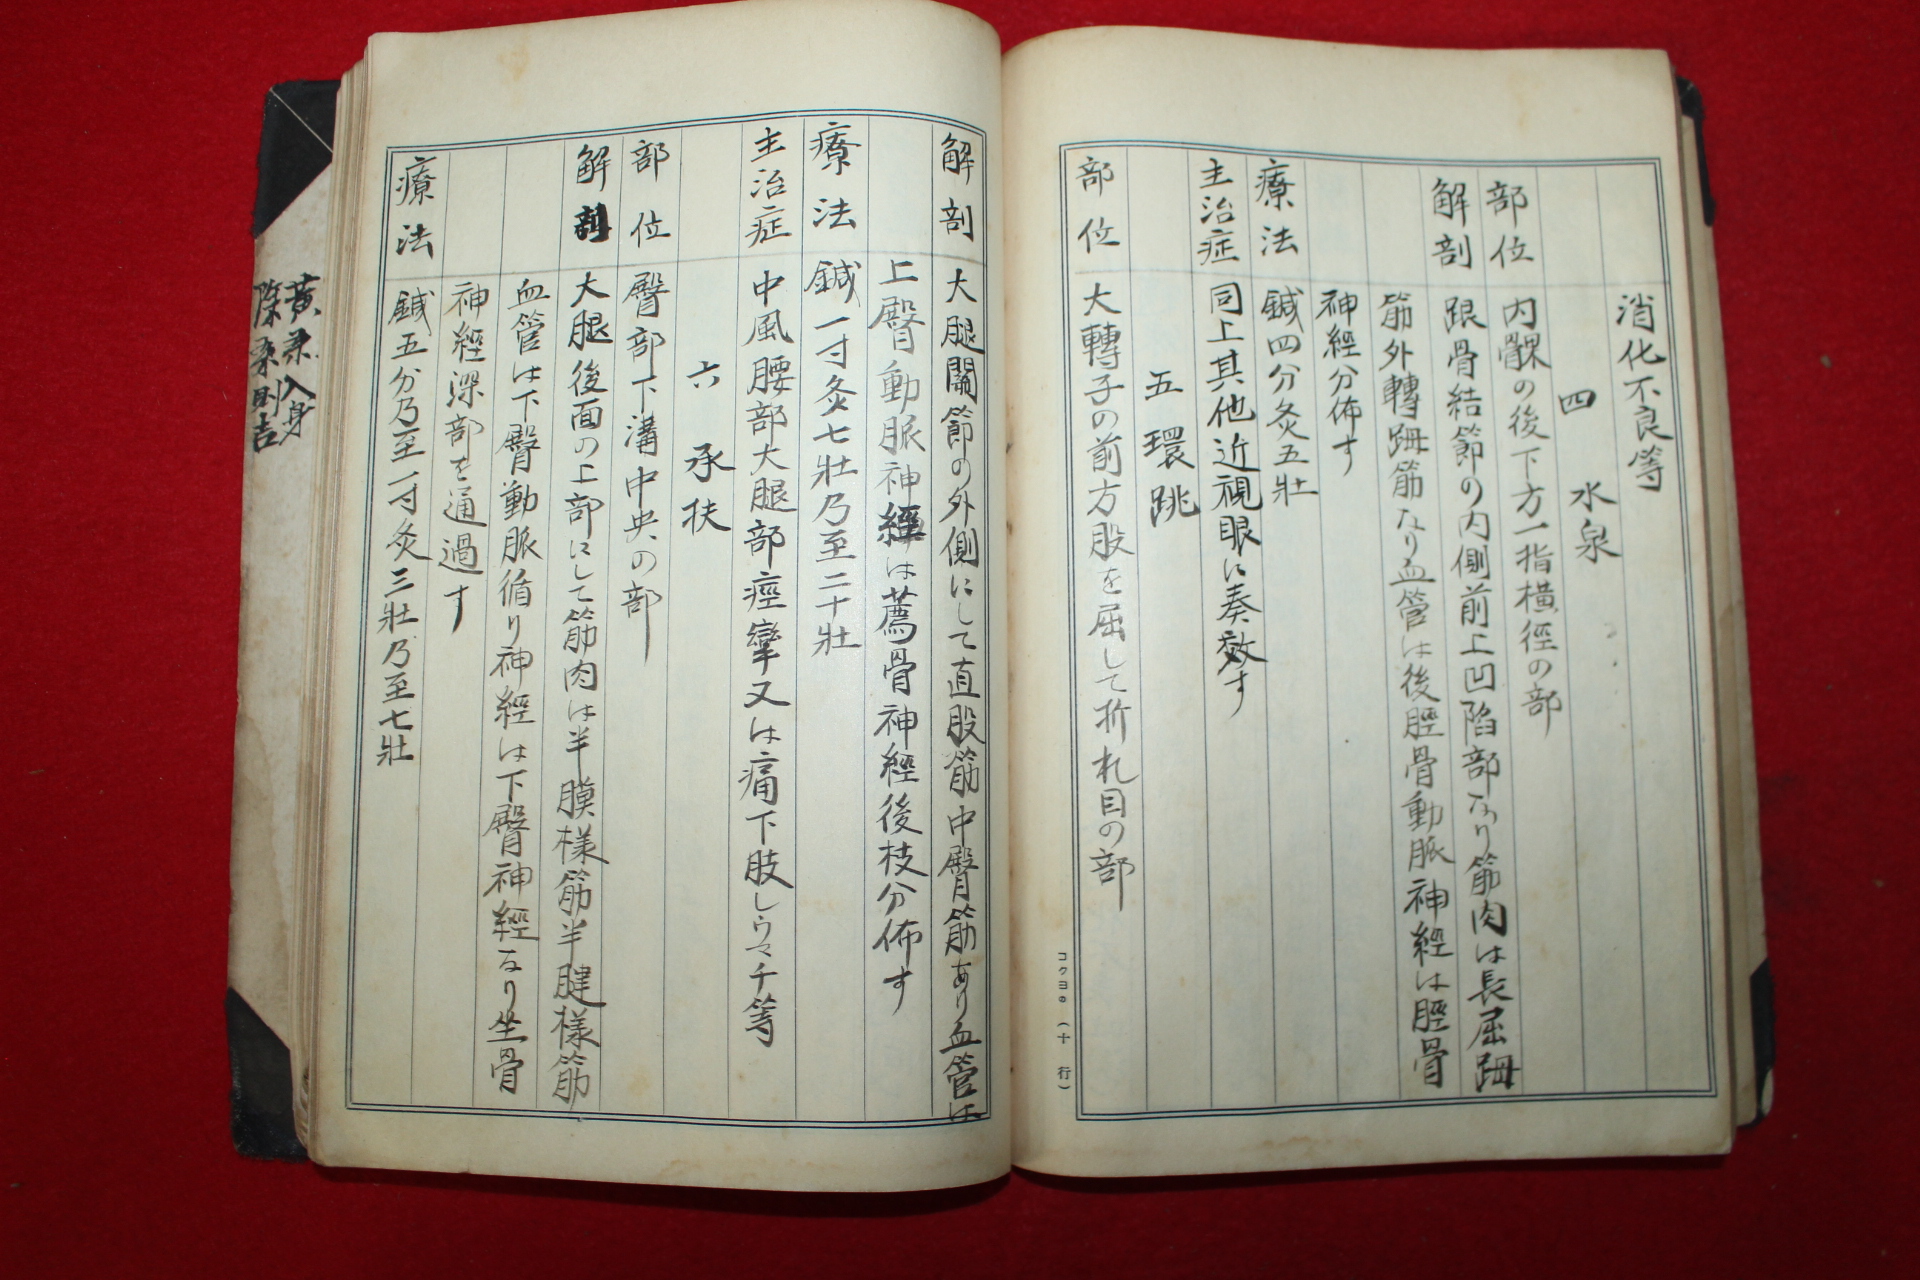 消化不良等
四 水泉
部位 内髁の後下方一指横徑の部
解剖 跟骨結節の内側前上凹陷部なり筋肉は長屈踇
筋外轉踇筋なり血管は後脛骨動脈神經は脛骨
神經分佈す
療法 鍼四分灸五壯
主治症 同上其他近視眼に奏效す
五 環跳
部位 大轉子の前方股を屈して折れ目の部
コクヨの(十行)
解剖 大腿關節の外側にして直股筋中臀筋あり血管は
上臀動脈神經は薦骨神經後枝分佈す
療法 鍼一寸灸七壯乃至二十壯
主治症 中風腰部大腿部痙攣又は痛下肢しウマチ等
六 承扶
部位 臀部下溝中央の部
解剖 大腿後面の上部にして筋肉は半膜様筋半腱様筋
血管は下臀動脈循り神經は下臀神經なり坐骨
神經深部を通過す
療法 鍼五分乃至一寸灸三壯乃至七壯